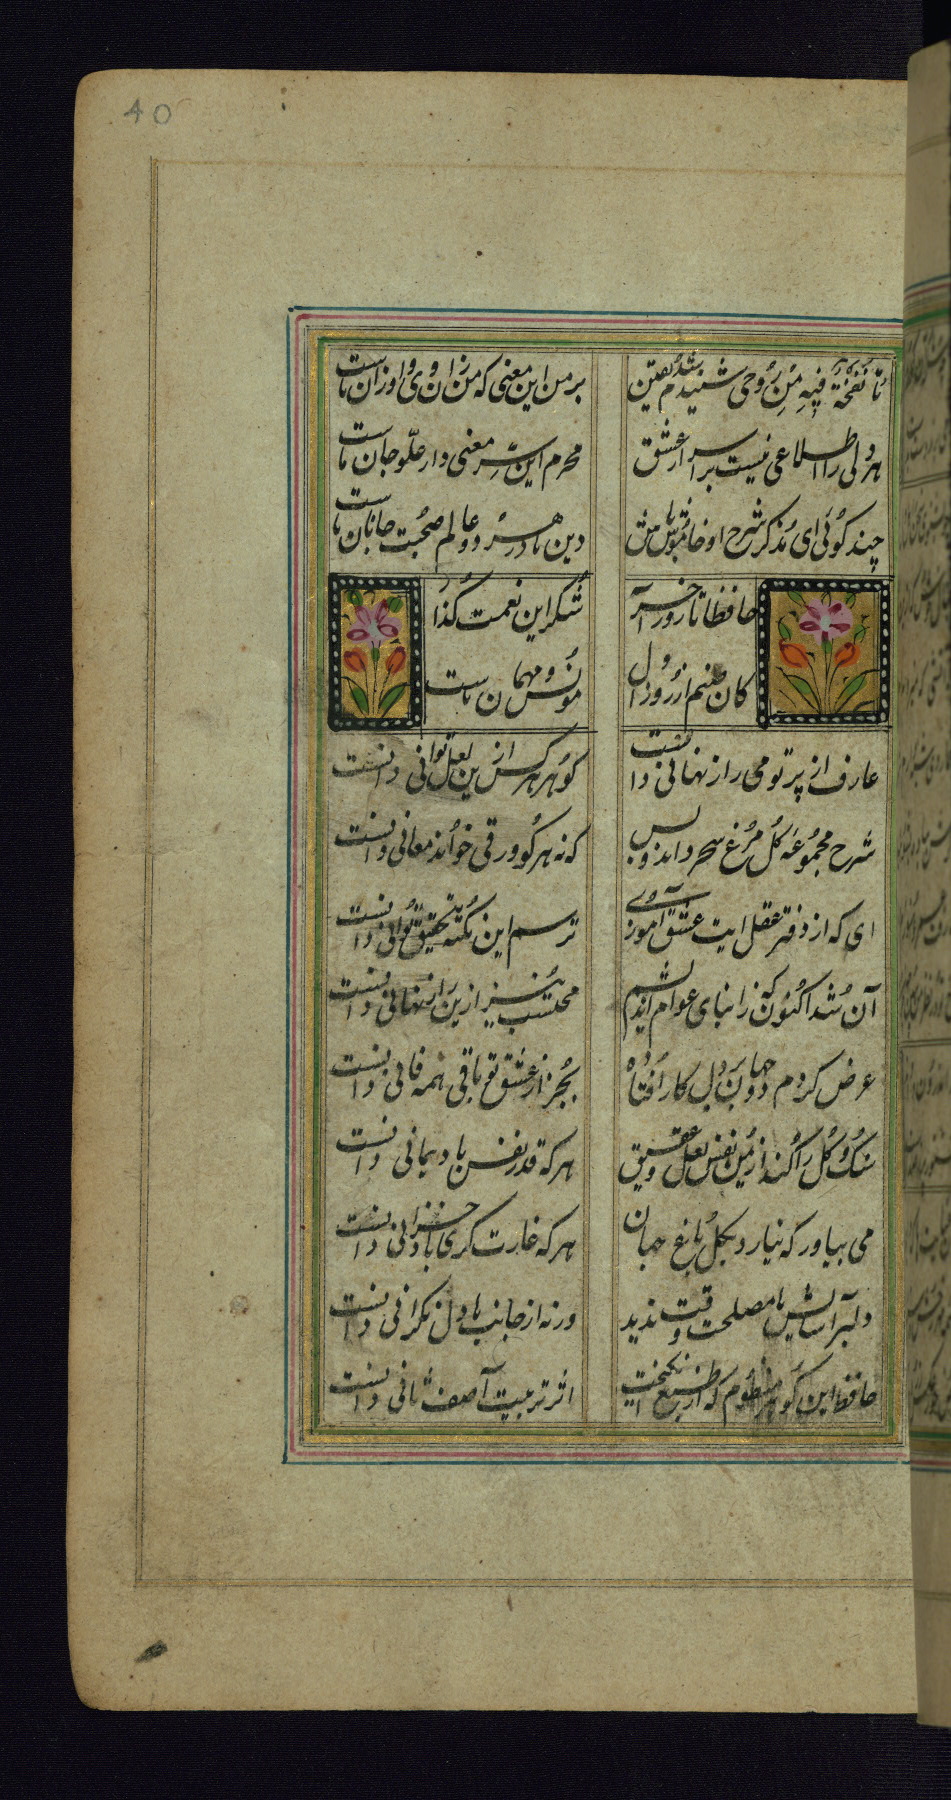 40
تا نفخة فیه من روحی شنیدم شد یقین
بر من این معنی که من زان وی و او زان ماست
هر ولی را اطلاعی نیست بر اسرار عشق
محرم این سر معنی دار علو جان ماست
چند کوئی ای مذکر شرح او خاموش باش
دین ما در هر دو عالم صحبت جانان ماست
حافظا تا روز آخر
شکر این نعمت گذا
کان صنم از روز اول
مونس و مهمان ماست
عارف از پرتو می راز نهانی دانست
کوهر هر کس ازین لعل توانی دانست
شرح مجموعه کل مرغ سحر داند و بس
که نه هر کو ورقی خواند معانی دانست
ای که از دفتر عقل ایت عشق آموزی
ترسم این نکته بتحقیق توانی دانست
آن شد اکنون که ز ابنای عوام اندیشم
محتسب نیز ازین راز نهانی دانست
عرض کردم دو جهان بر دل کار افتاده
بجز از عشق تو باقی همه فانی دانست
سنک و کل را کند از یمن نفس لعل و عقیق
هر که قدر نفس باد یمانی دانست
می بیاور که نیارد بکل باغ جهان
هر که غارت کری باد خزانی دانست
دلبر آسایش ما مصلحت وقت ندید
ورنه از جانب ما دل نکرانی دانست
حافظ این کوهر منظوم که از طبع انکیخت
اثر تربیت آصف ثانی دانست